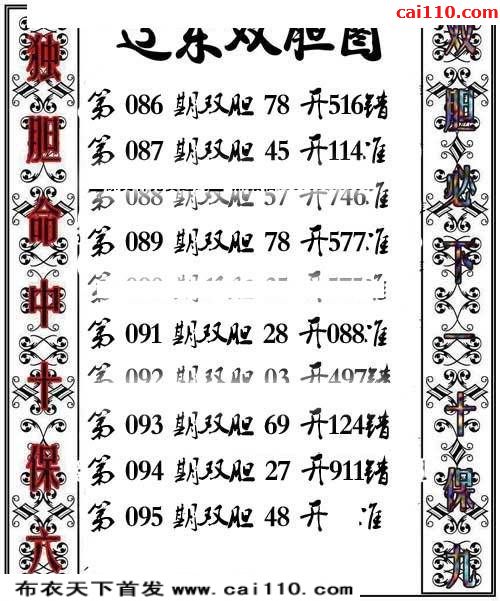 cai110.com
辽东双胆图
独胆命中十保六
第 086 期双胆 78 开516错
第 087 期双胆 45 开114准
第 088 期双胆 57 开746准
第 089 期双胆 78 开577准
第 091 期双胆 28 开088准
第 092 期双胆 03 开497错
第 093 期双胆 69 开124错
第 094 期双胆 27 开911错
第 095 期双胆 48 开 准
双胆必下一十保九
布衣天下首发 www.cai110.com